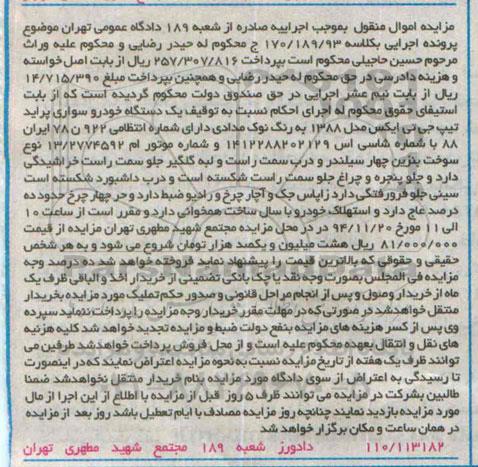 مزایده اموال منقول بموجب اجراییه صادره از شعبه ۱۸۹ دادگاه عمومی تهران موضوع
پرونده اجرایی بکلاسه ۱۷۰/۱۸۹/۹۳ ج محکوم له حیدر رضایی و محکوم علیه وراث
مرحوم حسین حاجیلی محکوم است بپرداخت ۲۵۷/۳۰۷/۸۱۶ ریال از بابت اصل خواسته
و هزینه دادرسی در حق محکوم له حیدر رضایی و همچنین بپرداخت مبلغ ۱۴/۷۱۵/۳۹۰
ریال از بابت نیم عشر اجرایی در حق صندوق دولت محکوم گردیده است که از بابت
استیفای حقوق محکوم له اجرای احکام نسبت به توقیف یک دستگاه خودرو سواری پراید
تیپ جی تی ایکس مدل ۱۳۸۸ به رنگ نوک مدادی دارای شماره انتظامی ۹۲۲ ن ۷۸ ایران
۸۸ با شماره شاسی اس ۱۴۱۲۲۸۸۲۰۲۱۲۹ و شماره موتور ام ۱۳/۲۷۷۴۵۹۲ نوع
سوخت بنزین چهار سیلندر و درب سمت راست و لبه گلگیر جلو سمت راست خراشیدگی
دارد و جلو پنجره و چراغ جلو سمت راست شکسته است و درب داشبورد شکسته است
سینی جلو فرورفتگی دارد زاپاس جک و آچار چرخ و رادیو ضبط دارد و حر چهار چرخ حدود ده
درصد عاج دارد و استهلاک خودرو با سال ساخت همخوانی دارد و مقرر است از ساعت ۱۰
الی ۱۱ مورخ ۹۴/۱۱/۲۰ در در محل مزایده مجتمع شهید مطهری تهران مزایده از قیمت
۸۱/۰۰۰/۰۰۰ ریال هشت میلیون و یکصد هزار تومان شروع می شود و به هر شخص
حقیقی و حقوقی که بالاترین قیمت را پیشنهاد نماید فروخته خواهد شد ده درصد وجه
مزایده فی المجلس بصورت وجه نقد یا چک بانکی تضمینی از خریدار اخذ و الباقی ظرف یک
ماه از خریدار وصول و پس از انجام مراحل قانونی و صدور حکم تملیک مورد مزایده بخریدار
منتقل خواهدشد در صورتی که در مهلت مقرر خریدار وجه مزایده را پرداخت ننماید سپرده
وی پس از کسر هزینه های مزایده بنفع دولت ضبط و مزایده تجدید خواهد شد کلیه هزینه
های نقل و انتقال بعهده محکوم علیه است و از محل فروش پرداخت خواهدشد طرفین می
توانند ظرف یک هفته از تاریخ مزایده نسبت به نحوه مزایده اعتراض نمایند که در اینصورت
تا رسیدگی به اعتراض از سوی دادگاه مورد مزایده بنام خریدار منتقل نخواهدشد ضمنا
طالبین بشرکت در مزایده می توانند ظرف ۵ روز قبل از مزایده با اطلاع از این اجرا از مال
مورد مزایده بازدید نمایند چنانچه روز مزایده مصادف با ایام تعطیل باشد روز بعد از مزایده
در همان ساعت و مکان برگزار خواهد شد
۱۱۰/۱۱۳۱۸۲ دادورز شعبه ۱۸۹ مجتمع شهید مطهری تهران